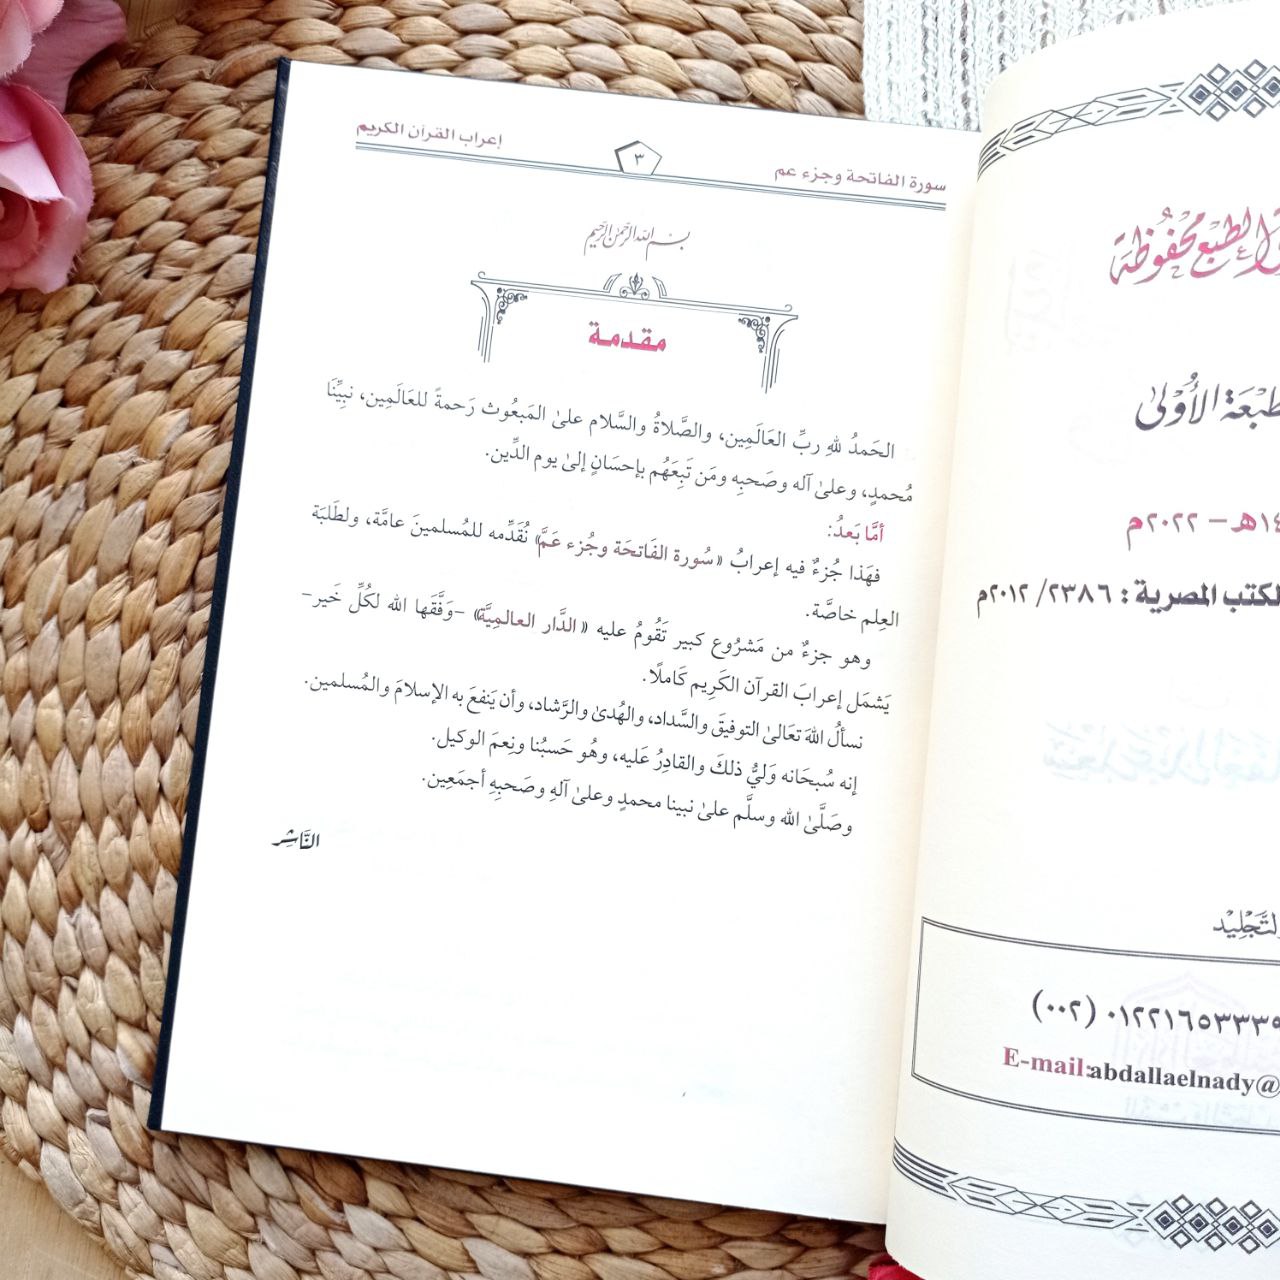 الطبع محفوظة
الأولى
هـ - ٢٠٢٢م
الكتب المصرية : ٢٣٨٦ /٢٠١٢م
التَّجْلِيْد
(٠٠٢) ٠١٢٢١٦٥٣٣٣٩
E-mail:abdallaelnady@
سورة الفاتحة وجزء عم
٣
إعراب القرآن الكريم
بسم الله الرحمن الرحيم
مقدمة
الحَمدُ للهِ ربِّ العَالَمِين، والصَّلاةُ والسَّلام علىٰ المَبعُوث رَحمةً للعَالَمِين، نبيِّنَا
مُحمدٍ، وعلىٰ آله وصَحبِه ومَن تَبِعَهُم بإحسَانٍ إلىٰ يوم الدِّين.
أمَّا بَعدُ:
فهَذا جُزءٌ فيه إعرابُ «سُورة الفَاتحَة وجُزء عَمَّ» نُقَدِّمه للمُسلمينَ عامَّة، ولطَلَبَة
العِلم خاصَّة.
وهو جزءٌ من مَشرُوع كبير تَقُومُ عليه «الدَّار العالمِيَّة» -وَفَّقَها الله لكُلِّ خَير-
يَشمَل إعرابَ القرآن الكَرِيم كَاملًا.
نسألُ اللهَ تعَالىٰ التوفيقَ والسَّداد، والهُدىٰ والرَّشاد، وأن يَنفعَ به الإسلامَ والمُسلمين.
إنه سُبحَانه وَليُّ ذلكَ والقادِرُ عَليه، وهُو حَسبُنا ونِعمَ الوكيل.
وصَلَّىٰ الله وسلَّم علىٰ نبينا محمدٍ وعلىٰ آلهِ وصَحبِهِ أجمَعِين.
النَّاشِر